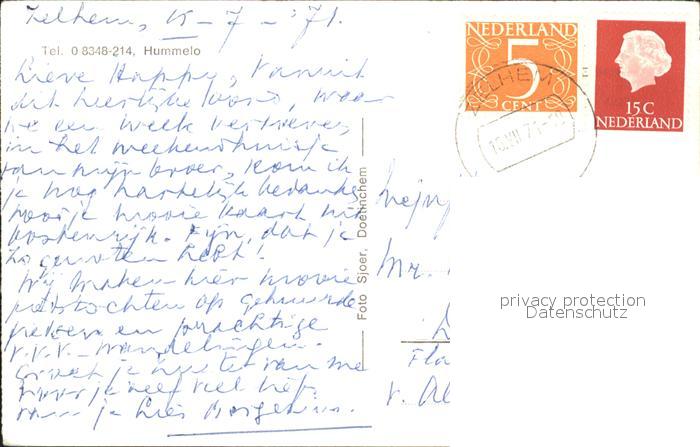 Zelhem, 15-7-'71.
Tel. 0 8348-214, Hummelo
Lieve Happy, Vanuit
dit heerlijke oord, waar
we een week vertoeven,
in het weekendhuisje
van mijn broer, kom ik
je nog hartelijk bedanken
voor je mooie kaart uit
Oostenrijk. Fijn, dat je
zo genoten hebt!
Wij maken hier mooie
fietstochten op gehuurde
fietsen en prachtige
V.V.V.-wandelingen.
Groet je zuster van me
voor je zelf veel liefs,
van je Lies
Foto Sjoer, Doetinchem
NEDERLAND
5
CENT
15 C
NEDERLAND
ZELHEM
Mr.
Fl
v.
privacy protection
Datenschutz